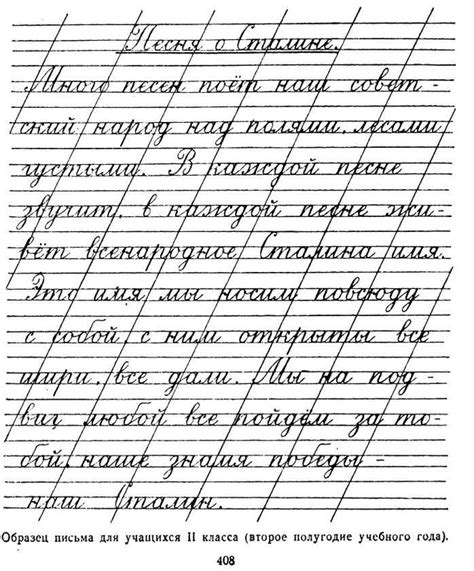 Песня о Сталине.
Много песен поёт наш совет-
ский народ над полями, лесами
густыми. В каждой песне
звучит, в каждой песне жи-
вёт всенародное Сталина имя.
Это имя мы носим повсюду
с собой, с ним открыты все
шири, все дали. Мы на под-
виг любой все пойдём за то-
бой, наше знамя победы -
наш Сталин.
Образец письма для учащихся II класса (второе полугодие учебного года).
408